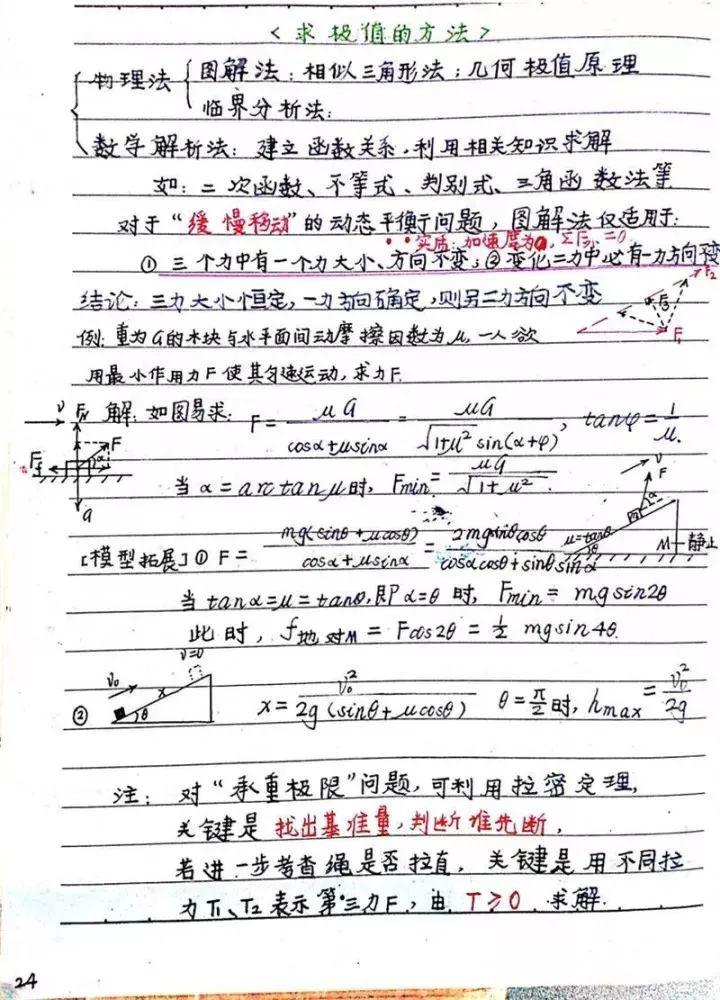 <求极值的方法>
物理法 图解法:相似三角形法;几何极值原理
临界分析法:
数学解析法: 建立函数关系,利用相关知识求解
如:二次函数、不等式、判别式、三角函数法等
对于“缓慢移动”的动态平衡问题,图解法仅适用于:
实质:加速度为0,
① 三个力中有一个力大小、方向不变;②变化二力中必有一力方向不变
结论:三力大小恒定,一力方向确定,则另二力方向不变
F₂
F₃
F₁
例:重为G的木块与水平面间动摩擦因数为μ,一人欲
用最小作用力F使其匀速运动,求力F.
解:如图易求: F = μG/(cosα+μsinα) = μG/(√(1+μ²) sin(α+φ)), tanφ = 1/μ.
v FN F α Ff G
当 α = arctanμ时, Fmin = μG/√(1+μ²).
v F α μ=tanθ θ M 静止
[模型拓展]① F = mg(sinθ+μcosθ)/(cosα+μsinα) = 2mgsinθcosθ/(cosαcosθ+sinθsinα)
当tanα=μ=tanθ,即α=θ时, Fmin = mgsin2θ
此时, f地对M = Fcos2θ = ½ mgsin4θ.
v=0
v₀ x θ
② x = v₀²/(2g(sinθ+μcosθ)) θ=π/2时, hmax = v₀²/2g
注: 对“承重极限”问题,可利用拉密定理,
关键是 找出基准量,判断谁先断,
若进一步考查绳是否拉直, 关键是用不同拉
力T₁、T₂表示第三力F,由 T≥0 求解.
24